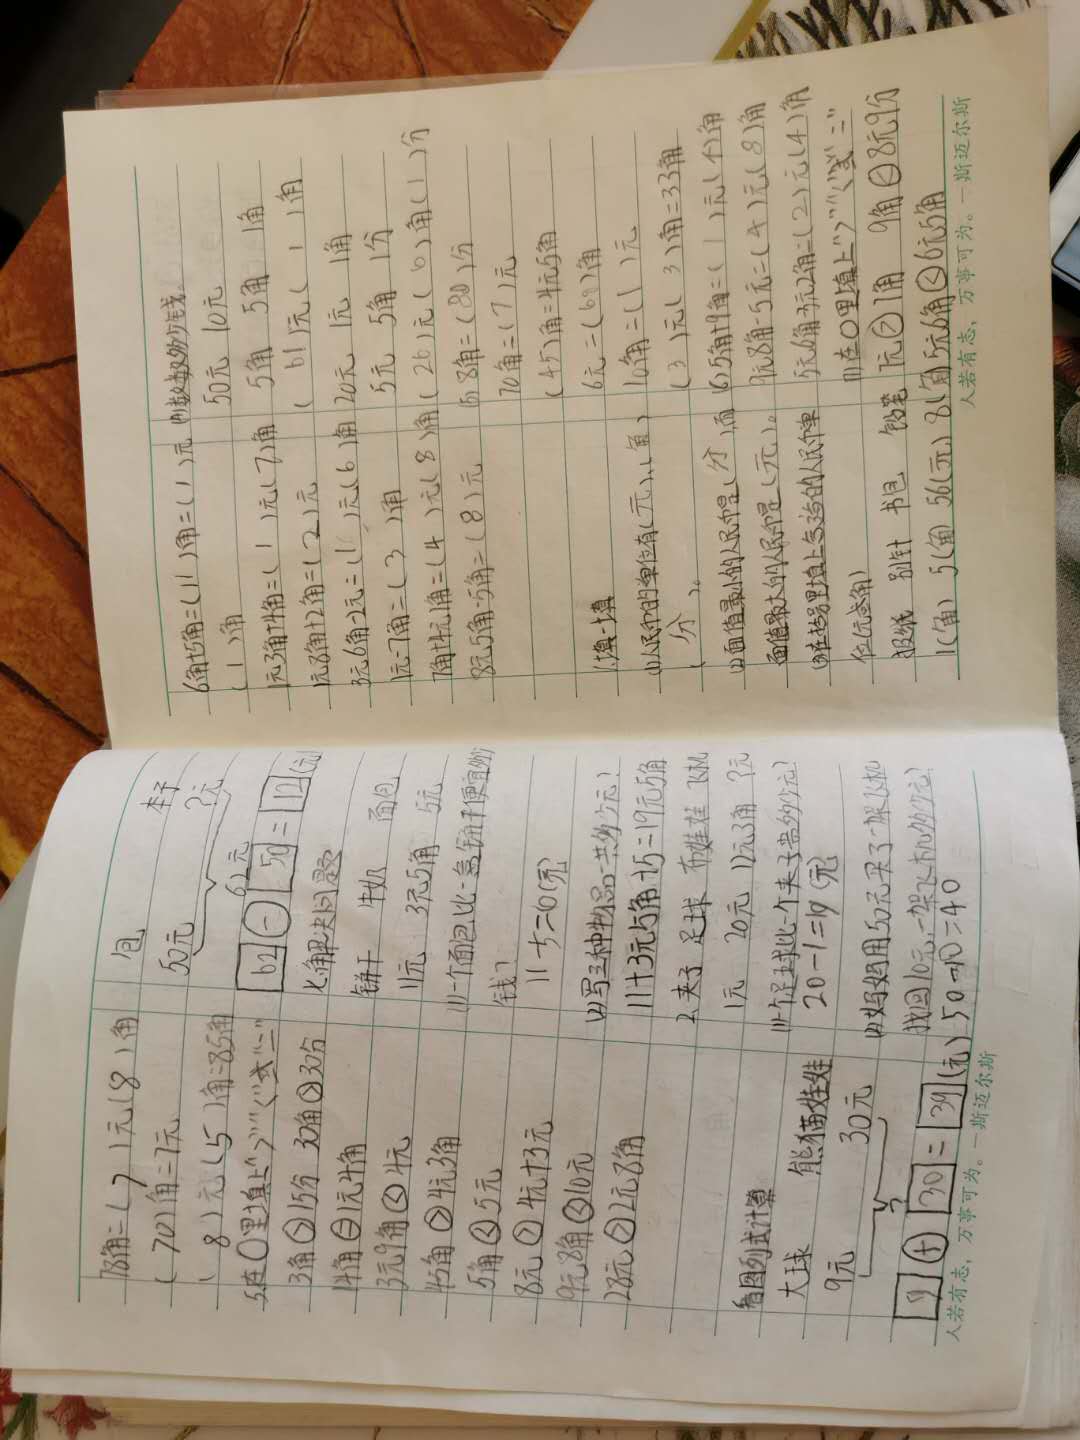 78角=(7)元(8)角
(70)角=7元
(8)元(5)角=85角
5.在○里填上">""<"或"="
3角>15分 30角>30分
14角=1元4角
3元9角<4元
45角>4元3角
5角<5元
8元>4元+3元
9元8角<10元
28元>2元8角
看图列式计算
大球 熊猫娃娃
9元 30元
?
9+30=39(元)
包 本子
50元 ?元
62元
62-50=12(元)
七.解决问题
饼干 牛奶 面包
11元 3元5角 5元
(1)一个面包比一盒饼干便宜多少
钱?
11-5=6(元)
(2)买三种物品一共多少元?
11+3元5角+5=19元5角
2.夹子 足球 布娃娃 飞机
1元 20元 12元3角 ?元
(1)一个足球比一个夹子贵多少元?
20-1=19(元)
(2)妈妈用50元买了一架飞机
找回10元,一架飞机多少元?
50-10=40
人若有志,万事可为。—斯迈尔斯
6角+5角=(11)角=(1)元
(1)角
1元3角+4角=(1)元(7)角
1元8角+2角=(2)元
3元6角-2元=(1)元(6)角
1元-7角=(3)角
7角+4元1角=(4)元(8)角
8元5角-5角=(8)元
1.填一填
(1)人民币的单位有(元)、(角)、
(分)。
(2)面值最小的人民币是(分)面
面值最大的人民币是(元)。
(3)在括号里填上合适的人民币单
位(元或角)
报纸 别针 书包 铅笔
1(角) 5(角) 56(元) 8(角)
50元 10元
5角 5角 1角
(61)元(1)角
20元 1元 1角
5元 5角 1分
(26)元(6)角(1)分
8角=(80)分
70角=(7)元
(45)角=4元5角
6元=(60)角
10角=(1)元
(3)元(3)角=33角
(6)5角+9角=(1)元(4)角
9元8角-5元=(4)元(8)角
5元6角-3元2角=(2)元(4)角
(7)在○里填上">""<"或"="
1元>1角 9角<8元9分
5元6角<6元5角
人若有志,万事可为。—斯迈尔斯